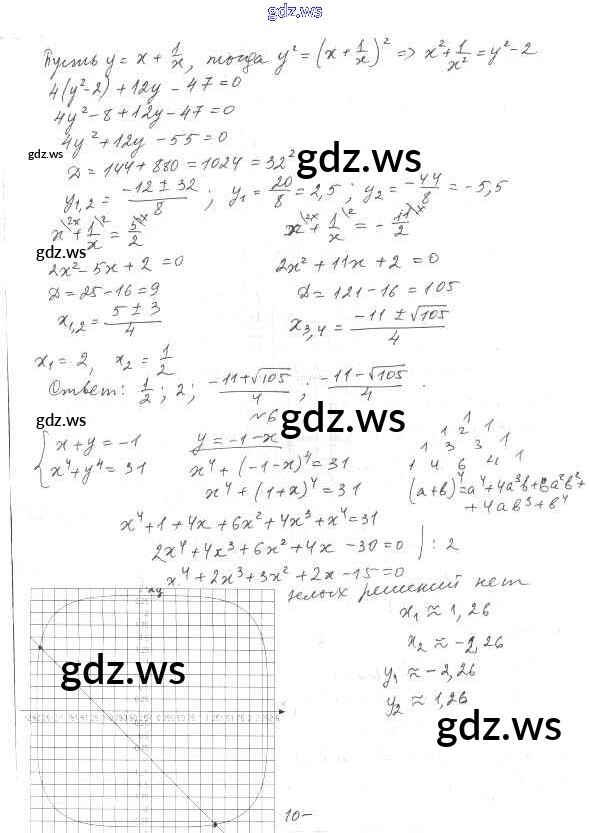 gdz.ws
Пусть y = x + 1/x, тогда y² = (x + 1/x)² => x² + 1/x² = y² - 2
4(y² - 2) + 12y - 47 = 0
4y² - 8 + 12y - 47 = 0
4y² + 12y - 55 = 0
gdz.ws
gdz.ws
D = 144 + 880 = 1024 = 32²
y₁,₂ = (-12 ± 32)/8 ; y₁ = 20/8 = 2,5 ; y₂ = -44/8 = -5,5
x\²ˣ + 1/x\² = 5/2\ˣ
x\²ˣ + 1/x\² = - 11/2\ˣ
gdz.ws
2x² - 5x + 2 = 0
2x² + 11x + 2 = 0
D = 25 - 16 = 9
D = 121 - 16 = 105
x₁,₂ = (5 ± 3)/4
x₃,₄ = (-11 ± √105)/4
x₁ = 2, x₂ = 1/2
Ответ: 1/2 ; 2 ; (-11 + √105)/4 ; (-11 - √105)/4 .
№6
gdz.ws
gdz.ws
{ x + y = -1
x⁴ + y⁴ = 31
y = -1 - x
x⁴ + (-1 - x)⁴ = 31
x⁴ + (1 + x)⁴ = 31
1
1 2 1
1 3 3 1
1 4 6 4 1
(a + b)⁴ = a⁴ + 4a³b + 6a²b² +
+ 4ab³ + b⁴
x⁴ + 1 + 4x + 6x² + 4x³ + x⁴ = 31
2x⁴ + 4x³ + 6x² + 4x - 30 = 0 / : 2
x⁴ + 2x³ + 3x² + 2x - 15 = 0
целых решений нет
x₁ ≈ 1,26
x₂ ≈ -2,26
y₁ ≈ -2,26
y₂ ≈ 1,26
gdz.ws
gdz.ws
10-